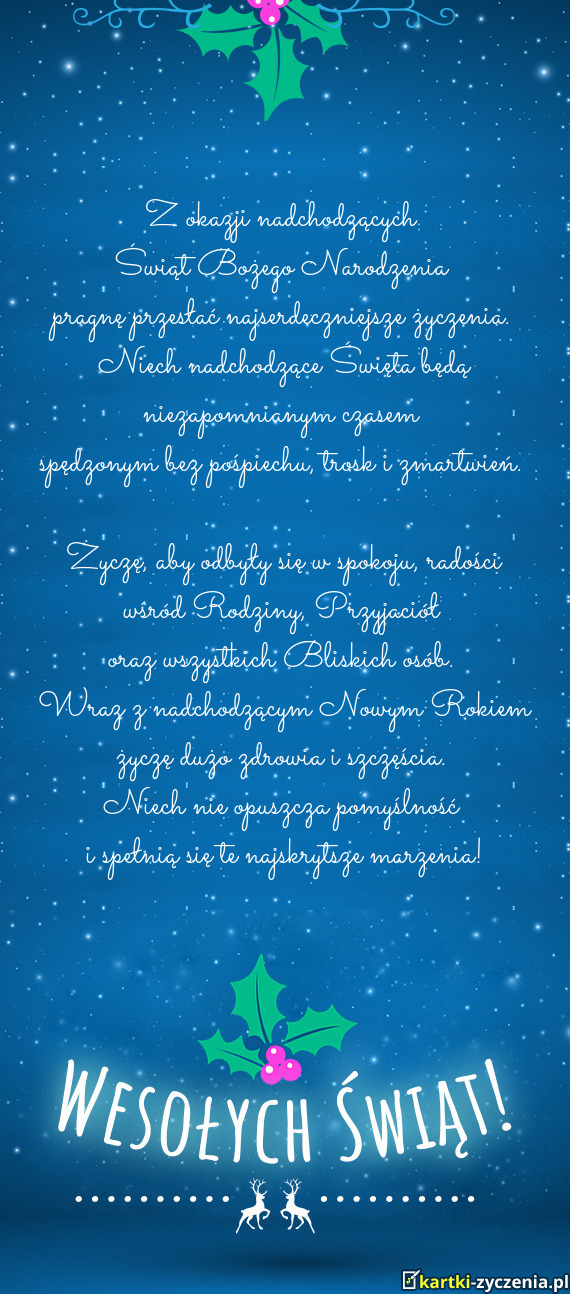 Z okazji nadchodzących
Świąt Bożego Narodzenia
pragnę przesłać najserdeczniejsze życzenia.
Niech nadchodzące Święta będą
niezapomnianym czasem
spędzonym bez pośpiechu, trosk i zmartwień.
Życzę, aby odbyły się w spokoju, radości
wśród Rodziny, Przyjaciół
oraz wszystkich Bliskich osób.
Wraz z nadchodzącym Nowym Rokiem
życzę dużo zdrowia i szczęścia.
Niech nie opuszcza pomyślność
i spełnią się te najskrytsze marzenia!
Wesołych Świąt!
kartki-zyczenia.pl